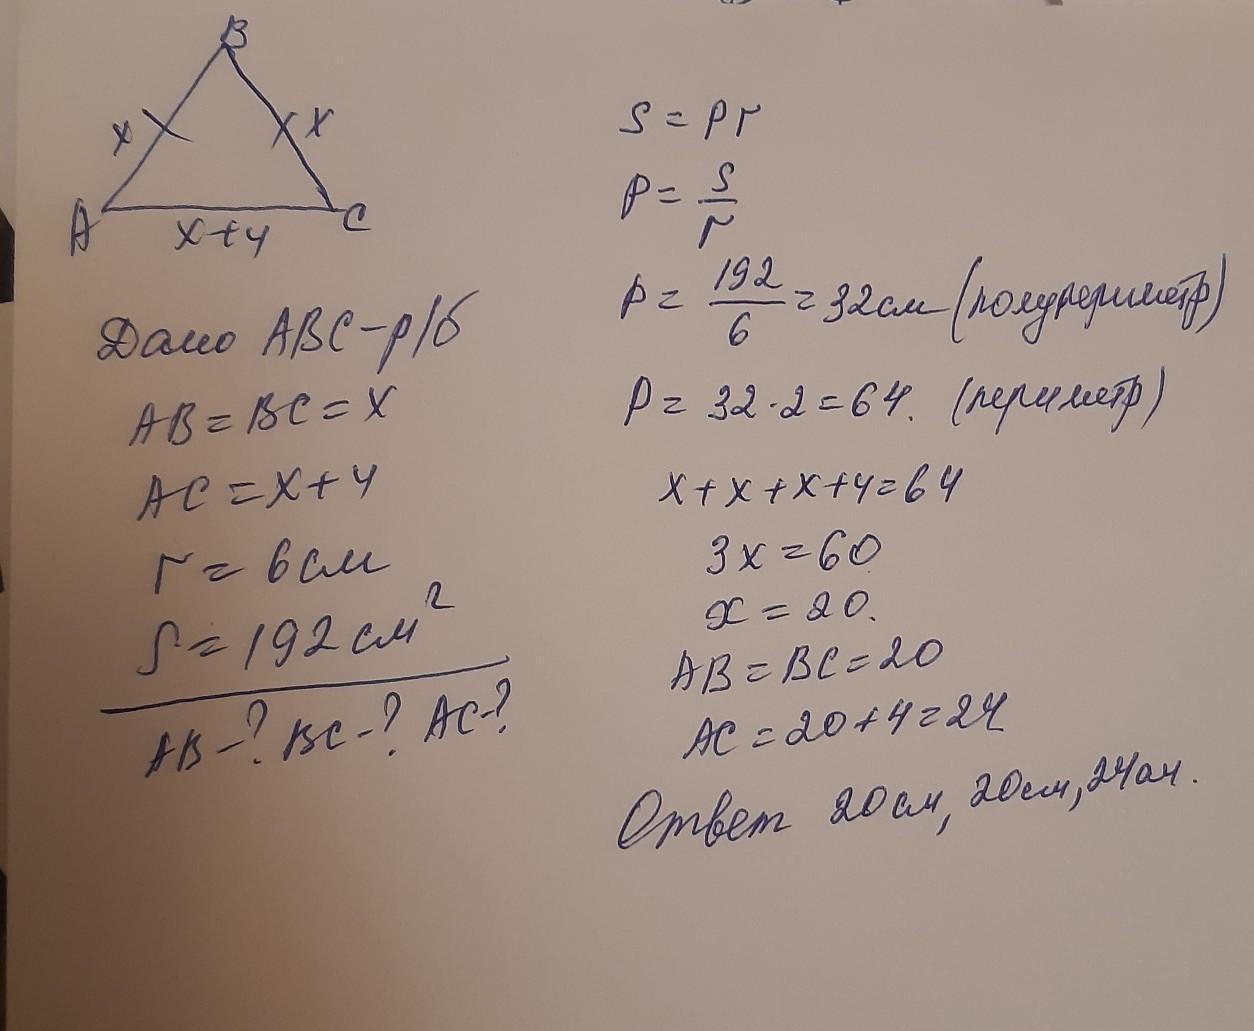 B
x x
A C
x+4
Дано ABC-р/б
AB=BC=x
AC=x+4
r=6см
S=192см²
AB-? BC-? AC-?
S=pr
p=S/r
p=192/6=32см (полупериметр)
P=32·2=64. (периметр)
x+x+x+4=64
3x=60
x=20.
AB=BC=20
AC=20+4=24
Ответ 20см, 20см, 24см.